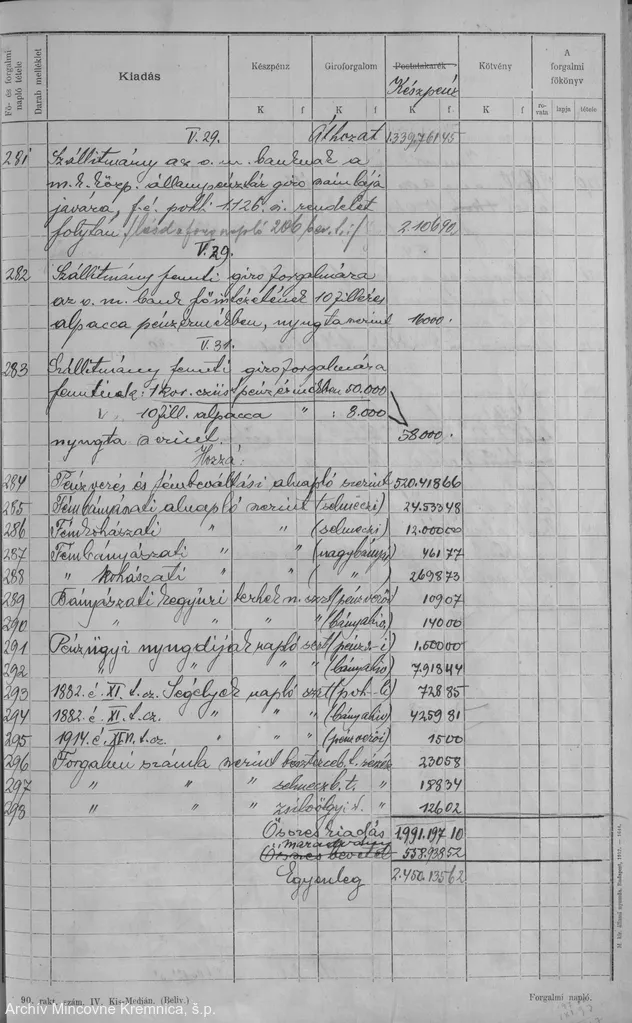 Fő- és forgalmi napló tétele
Darab melléklet
Kiadás
Készpénz
Giroforgalom
Postatakarék
Készpénz
Kötvény
A forgalmi főkönyv
K f K f K f K f rovata lapja tétele
V. 29. Áthozat 1.339.761 45
281 Szállítmány az o. m. banknak a
m. k. közp. állampénztár giro számlája
javára, f. é. 1126. sz. rendelet
folytán (lásd a forg. napló 286 bev. t.) 2.106 90
V. 29.
282 Szállítmány fenti giro forgalmára
az o. m. bank főintézetének 10 filléres
alpacca pénzérmékben, nyugta szerint 16000 .
V. 31.
283 Szállítmány fenti giro forgalmára
fentinek: 1 kor. ezüst pénzérmékben 50.000
10 fill. alpacca " : 8.000
nyugta szerint. 58.000 .
Hozzá:
284 Pénzverés és fémbeváltási alnapló szerint 520.418 66
285 Fémbányászati alnapló szerint (selmeczi) 24.533 48
286 Fémkohászati " " (selmeczi) 12.000 00
287 Fémbányászati " " (nagybányai) 461 77
288 " kohászati " " ( " ) 2698 73
289 Bányászati kegyúri terhek n. szt (pénzverői) 109 07
290 " " " (bányahiv) 140 00
291 Pénzügyi nyugdíjak napló szt (pénzv-i) 1,600 00
292 " " " (bányahiv) 7918 44
293 1882. é. XI. t. cz. Segélyek napló szt 728 85
294 1882. é. XI. t. cz. " " " (bányahiv) 4259 81
295 1914. é. t. cz. " " " (pénzverői) 15 00
296 Forgalmi számla szerint beszterceb. t. 230 58
297 " " " selmeczb. t. " 188 34
298 " " " zsilvölgyi t. " 126 02
Összes kiadás 1,991.197 10
maradvány
Összes bevétel 558.938 52
Egyenleg 2.450.135 62
90. rakt. szám. IV. Kis-Medián. (Beliv.)
Forgalmi napló.
Archív Mincovne Kremnica, š.p.